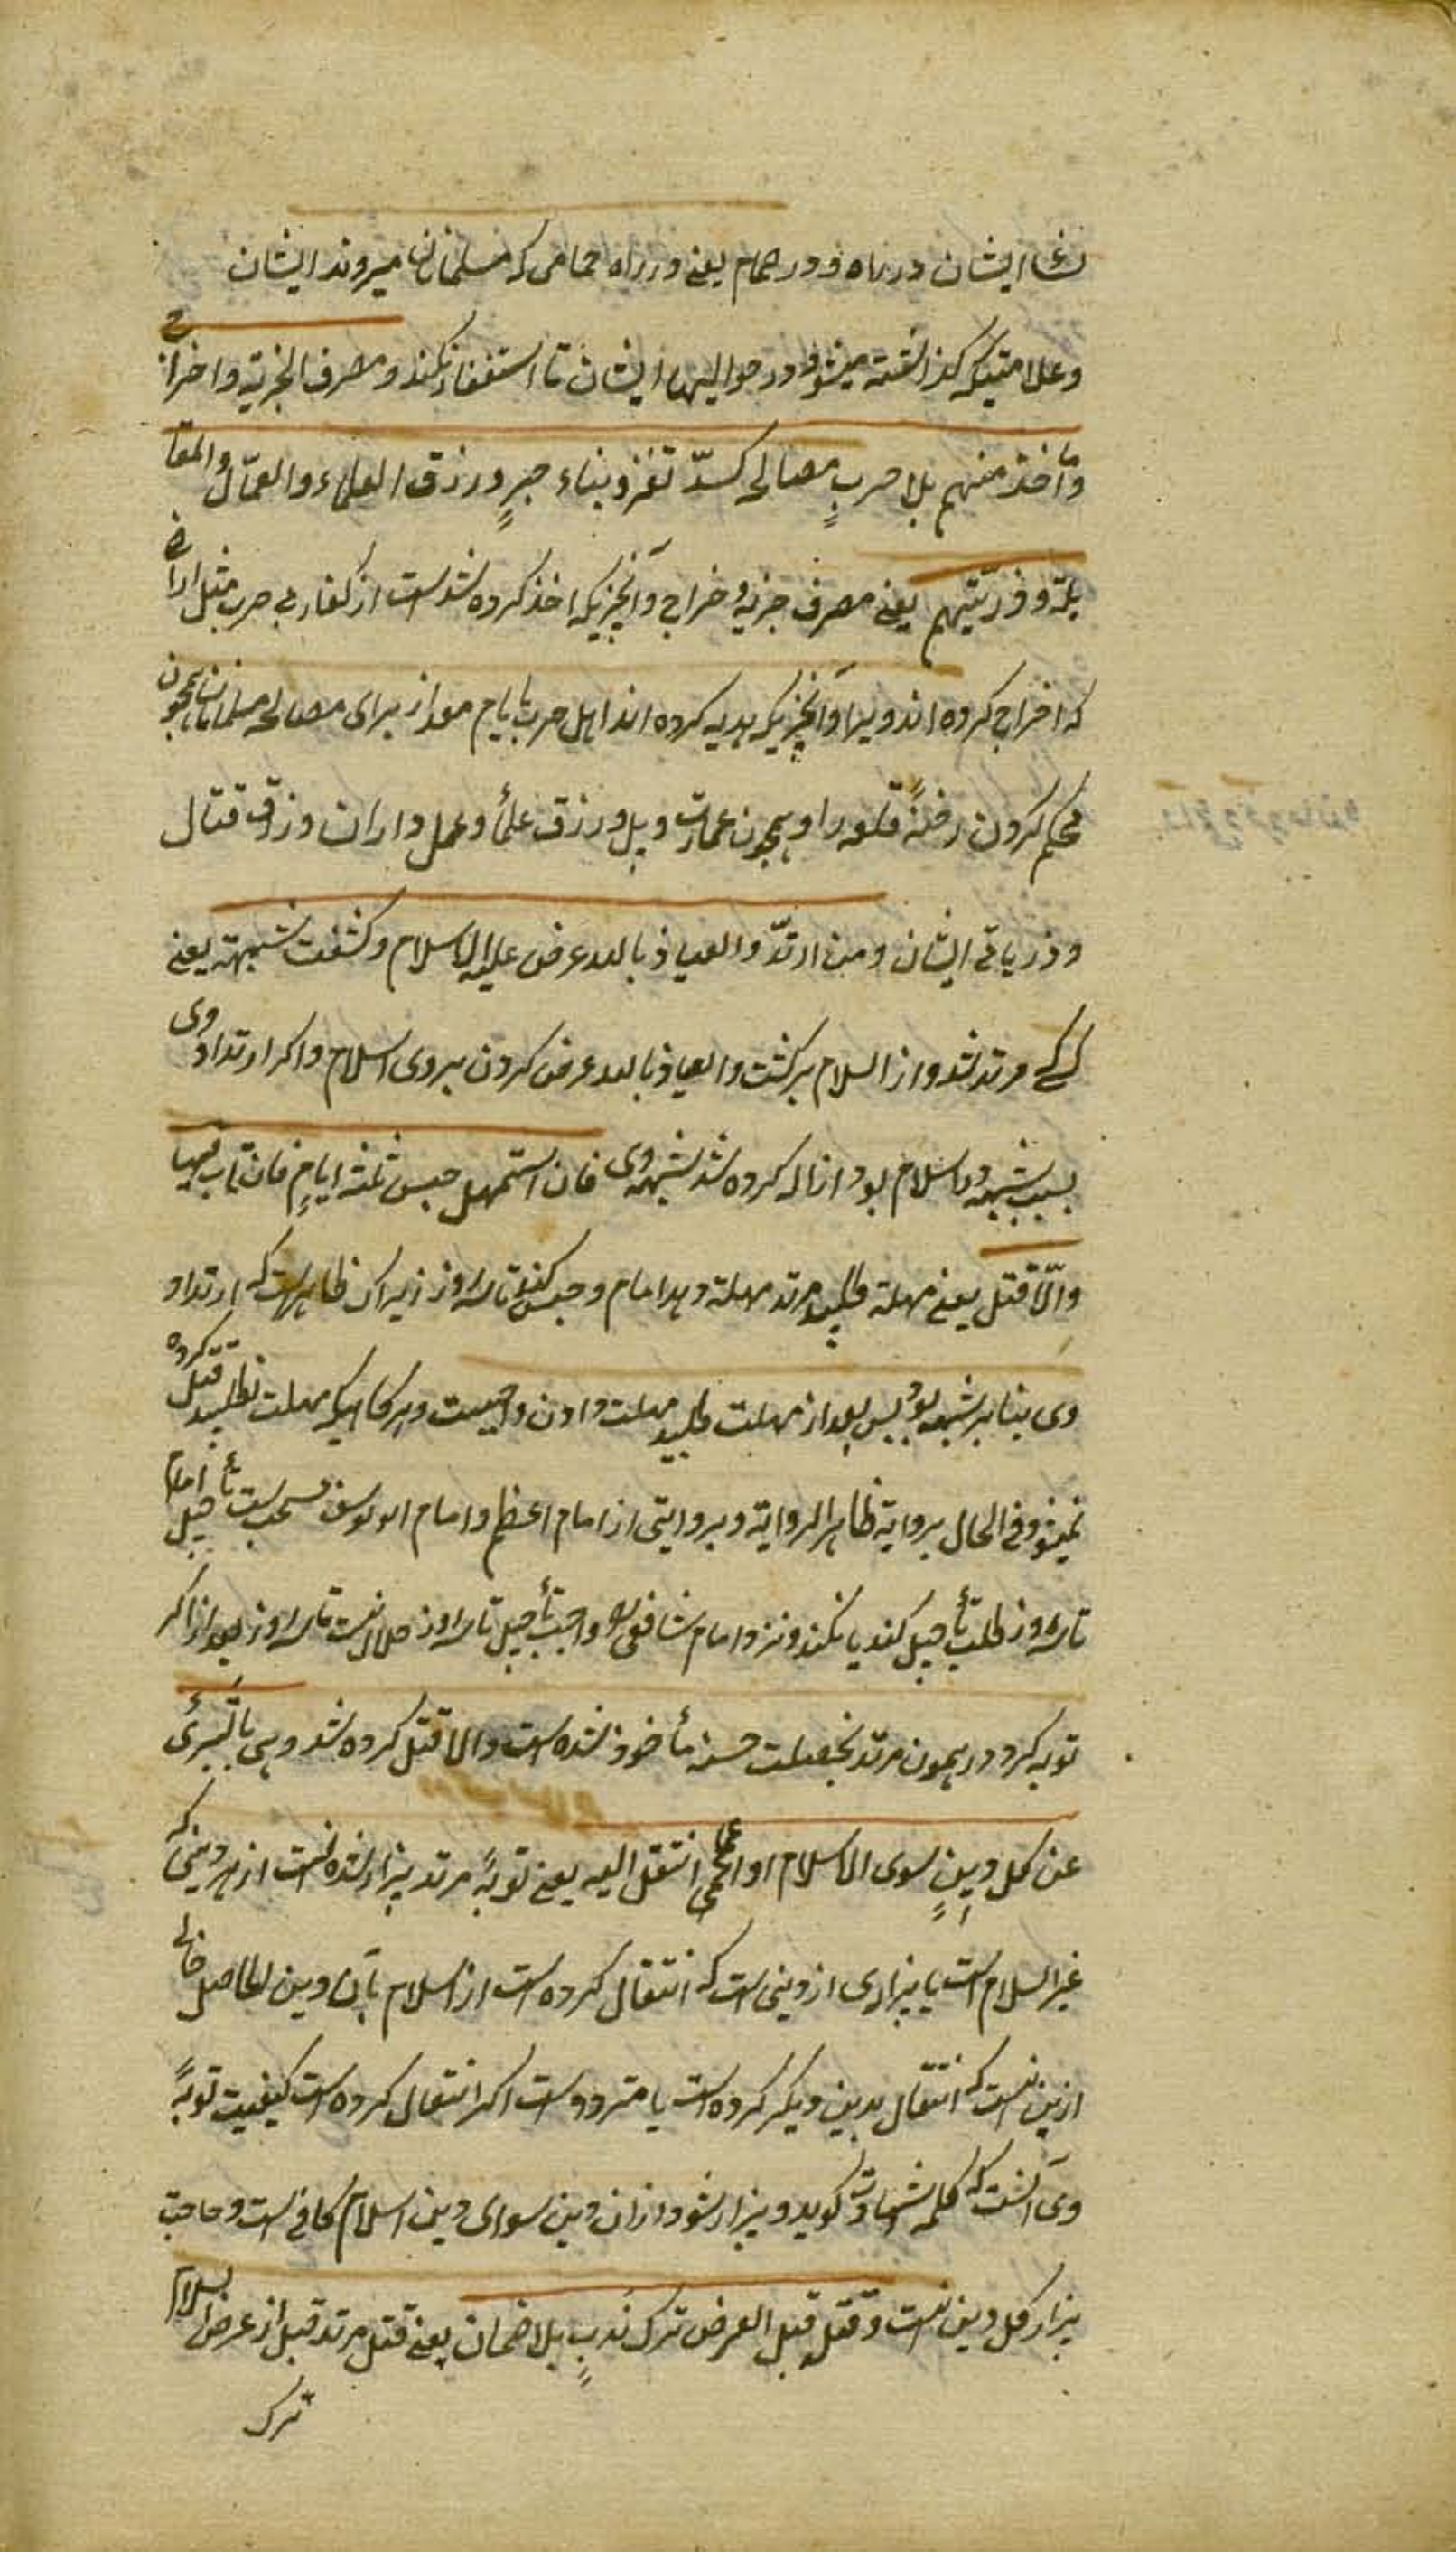 نساء ایشان در راه و در حمام یعنے در راه حمامی که مسلمانان میروند ایشان
و علامتیکه گذاشته میشود در حوالیهاء ایشان تا استغفار نکنند و مصرف الجزیة و الخراج
و ما اخذ منهم بلا حربٍ مصالحه کسدّ ثغر و بناء جسرٍ و رزق العلماء و العمّال و المقا
تلة و ذرّیّتهم یعنے مصرف جزیه و خراج و آنچیزیکه اخذ کرده شده است از کفار بے حرب مثل اراضی
که اخراج کرده اند ویرا و آنچیزیکه هدیه کرده اند اهل حرب با امام مر از برای مصالح مسلمانان همچون
محکم کردن رخنهٔ قلعه را و همچون عمارت پل و رزق علمأ و عمل داران و رزق قتال
و ذریاتے ایشان و من ارتدّ و العیاذ بالله عرض علیه الاسلام و کشفت شبهته یعنے
کسے مرتد شد و از اسلام برگشت و العیاذ بالله عرض کردن بروی اسلام و اگر ارتداد وی
بسبب شبهه در اسلام بود ازاله کرده شد شبهه وی فان استمهل حبس ثلثة ایامٍ فان تاب فبها
و الّا قتل یعنے مهلة طلبید مرتد مهلة دهد امام و حبس کند تا سه روز زیراک ظاهر است که ارتداد
وی بنابر شبهه بود پس بعد از مهلت طلبید مهلت دادن واجبست و هر گاهیکه مهلت نطلبید قتل کرده
نمیشود فی الحال بروایة ظاهر الروایة و بروایتی از امام اعظم و امام ابو یوسف مستحب است تأجیل امام
تا سه روز طلب تأجیل کند یا نکند و نزد امام شافعی واجب تأجیل تا سه روز حلال نیست تا سه روز بعد از اگر
توبه کرد در همون مرتد بخصلت حسنه مأخوذ شده است و الا قتل کرده شد و هی بالتبرئ
عن کل دینٍ سوی الاسلام او عما انتقل الیه یعنے توبهٔ مرتد بیزار شدنست از هر دینی که
غیر اسلام است یا بیزاری از دینی است که انتقال کرده است از اسلام بآن دین الحاصل خالی
ازین نیست که انتقال بدین دیگر کرده است یا متردد است اگر انتقال کرده است کیفیت توبهٔ
وی آنست که کلمه شهادت گوید و بیزار شود از ان دین سوای دین اسلام کافے است و حاجت
بیزار کل دین نیست و قتله قبل العرض ترک ندبٍ بلا ضمان یعنے قتل مرتد قبل از عرض اسلام
ترک